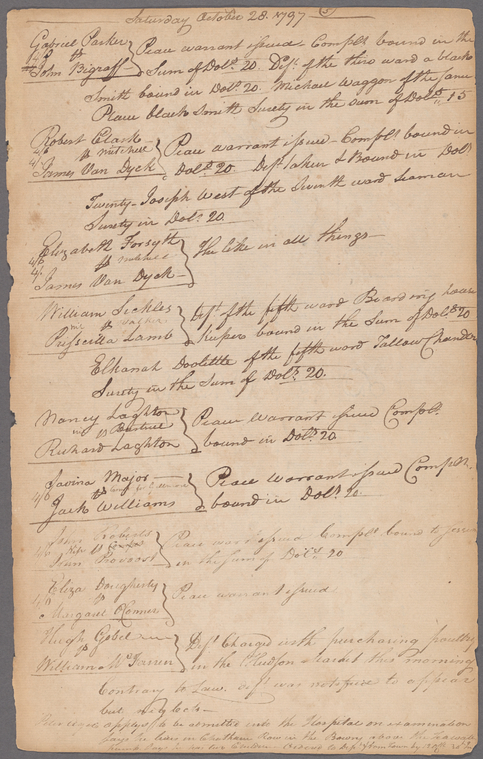 Saturday October 28. 1797
Gabriel Parker
vs
John Bigraff
Peace warrant issued - Complt bound in the
Sum of Dols. 20. Deft. of the third ward a black
Smith bound in Dols. 20. Michael Waggon of the same
Place black Smith Surety in the sum of Dols. 15
Robert Clark
4/6 vs Mitchell
James Van Dyck
Peace warrant issue - Complt bound in
Dols. 20 Deft taken & Bound in Dols
Twenty - Joseph West of the Seventh ward Seaman
Surety in Dols. 20
Elizabeth Forsyth
4/6 vs Mitchell
James Van Dyck
The like in all things
William Sickles
vs
Priscilla Lamb
Deft. of the fifth ward Boarding house
keeper bound in the Sum of Dols. 20
Elkanah Doolittle of the fifth ward Tallow Chandler
Surety in the Sum of Dols. 20.
Nancy Laghton
vs
Richard Laghton
Peace Warrant issued Complt.
bound in Dols. 20
Savina Major
4/6 vs
Jack Williams
Peace Warrant issued Complt.
bound in Dols. 20
Roberts
vs
Provoost
Peace warrt issued Complt bound to
in the sum of Dols. 20
Eliza Daugherty
vs
Margaret OConner
Peace warrant issued
Hugh Gobel
vs
William McFarren
Deft. Charged with purchasing poultry
in the Hudson Market this morning
Contrary to Law. deft was notifyed to appear
but neglects -
applys to be admitted into the Hospital on examination
says he lives in Chatham Row in the Bowery above the